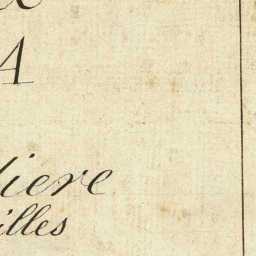 A
iere
illes